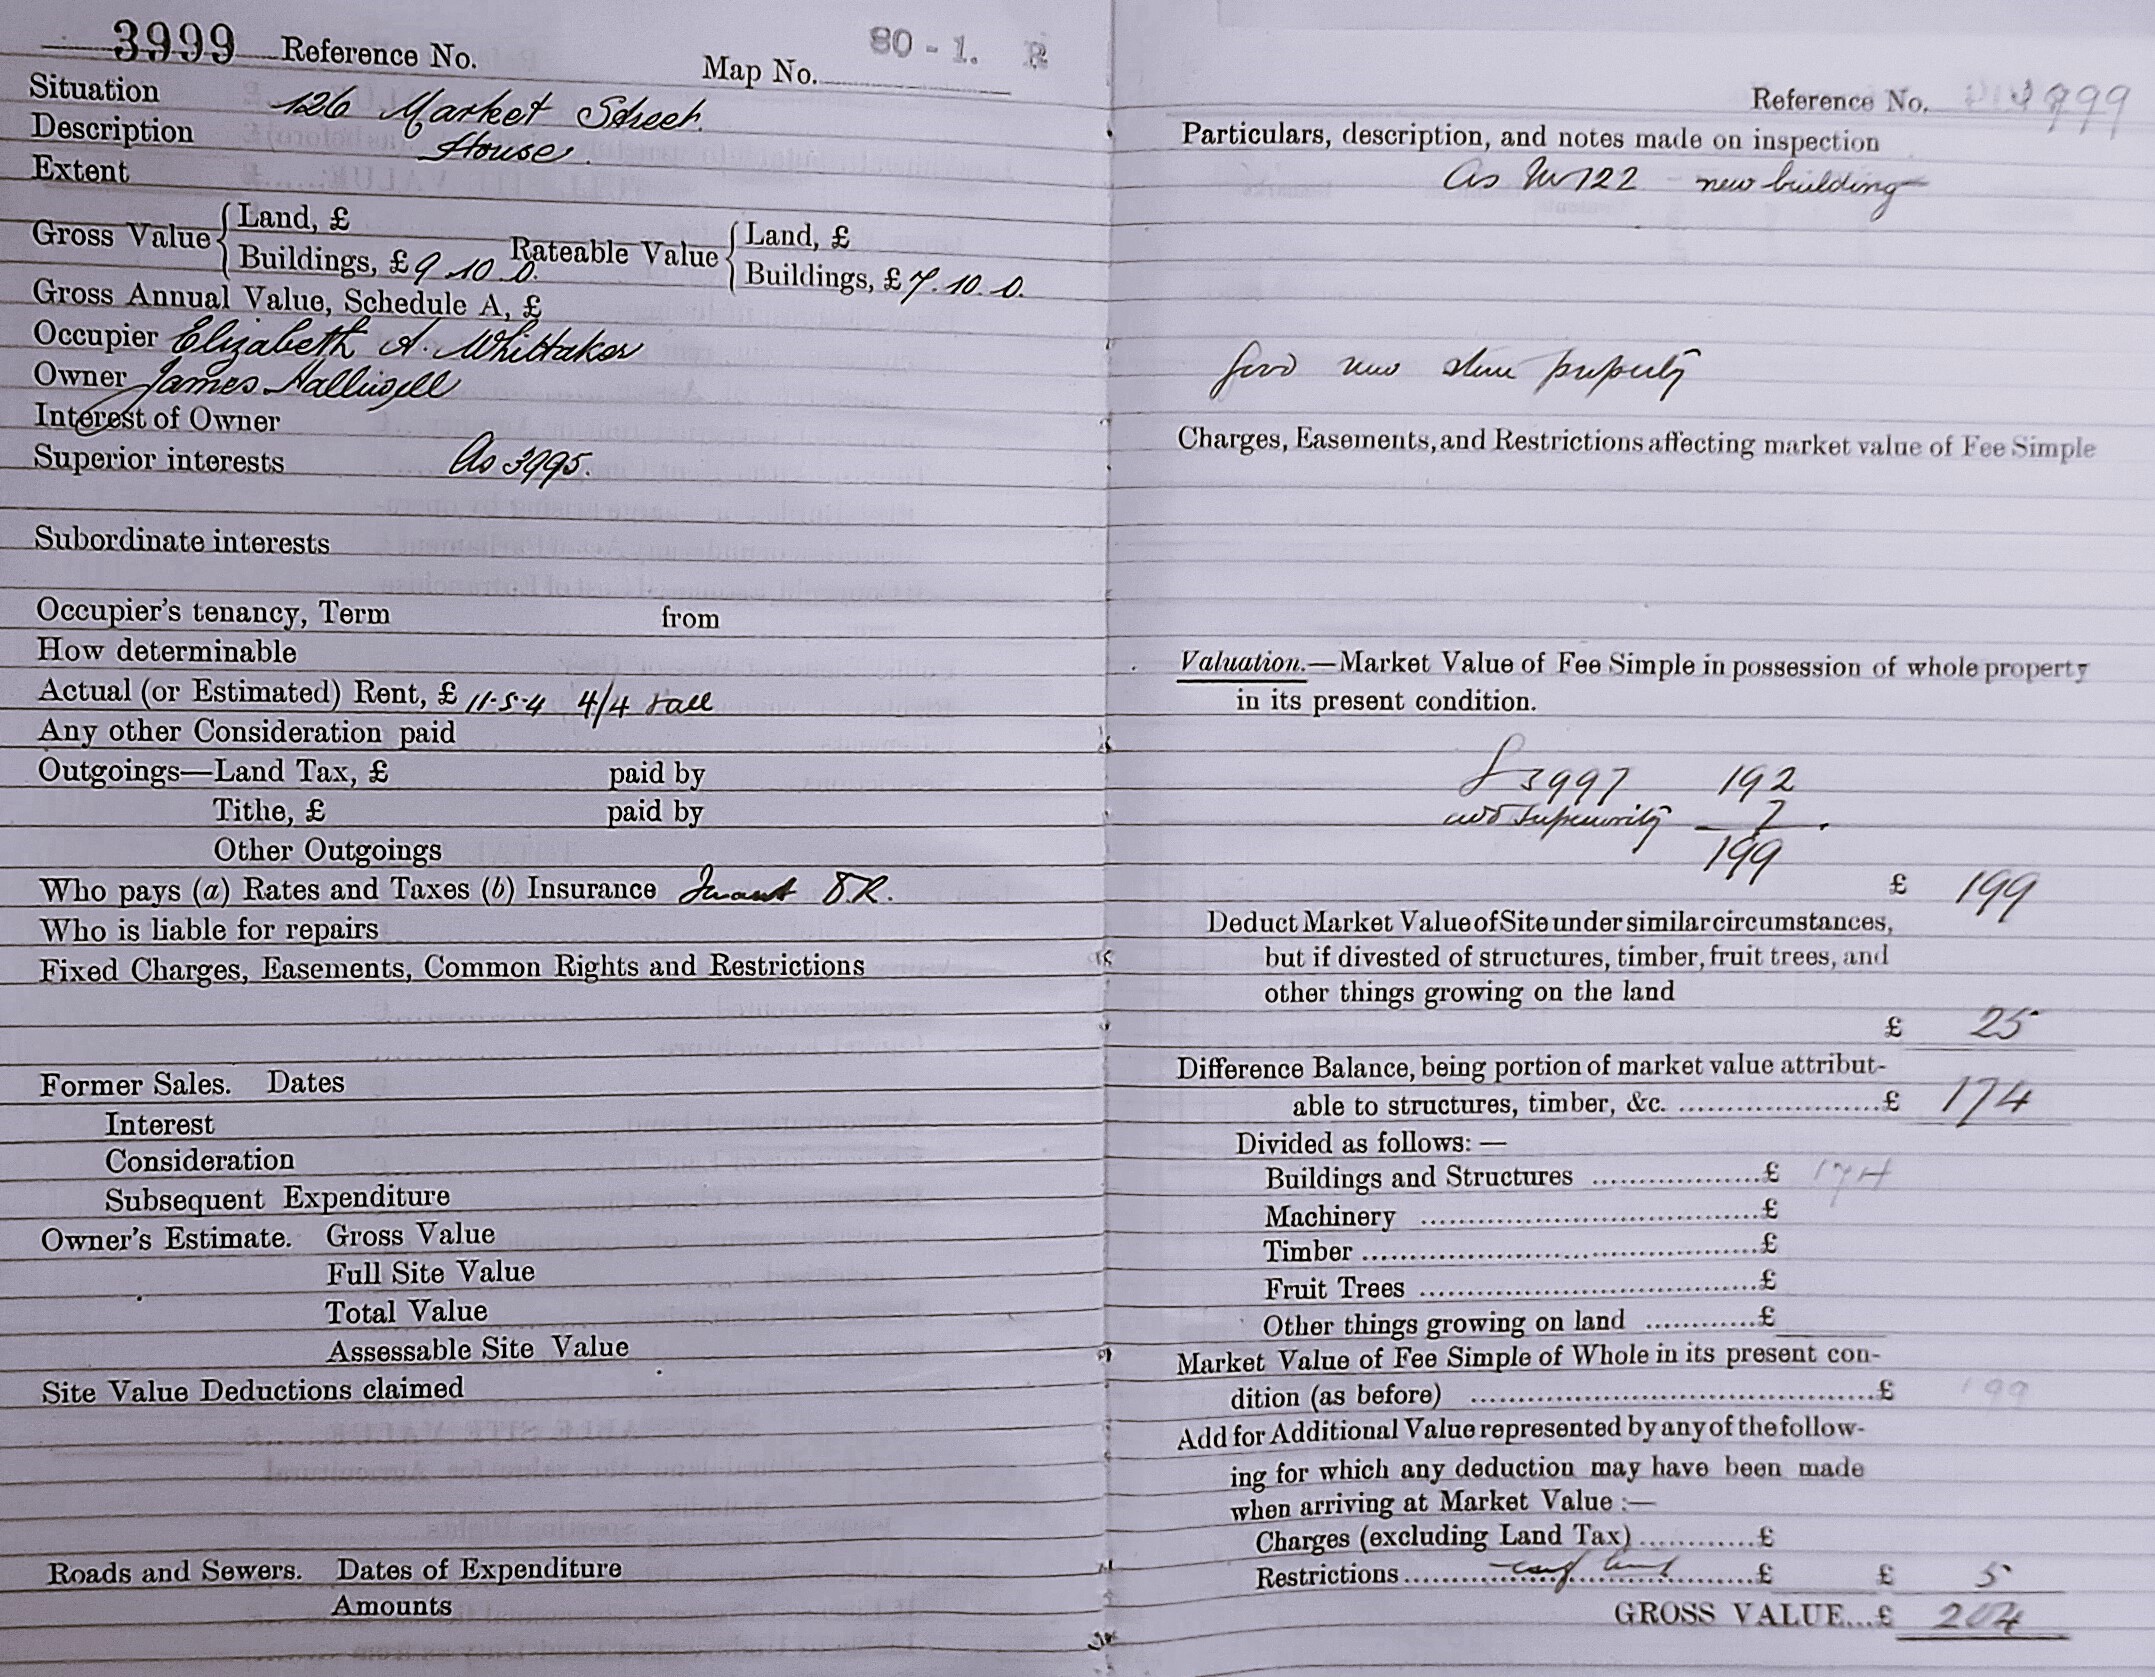 3999 Reference No. Map No. 80 - 1. B
Situation 126 Market Street.
Description House.
Extent
Gross Value { Land, £
Buildings, £ 9. 10. 0. Rateable Value { Land, £
Buildings, £ 7. 10. 0.
Gross Annual Value, Schedule A, £
Occupier Elizabeth A. Whittaker
Owner James Halliwell
Interest of Owner
Superior interests As 3995.
Subordinate interests
Occupier's tenancy, Term from
How determinable
Actual (or Estimated) Rent, £ 11-5-4 4/4
Any other Consideration paid
Outgoings—Land Tax, £ paid by
Tithe, £ paid by
Other Outgoings
Who pays (a) Rates and Taxes (b) Insurance Tenant
Who is liable for repairs
Fixed Charges, Easements, Common Rights and Restrictions
Former Sales. Dates
Interest
Consideration
Subsequent Expenditure
Owner's Estimate. Gross Value
Full Site Value
Total Value
Assessable Site Value
Site Value Deductions claimed
Roads and Sewers. Dates of Expenditure
Amounts
Reference No. 3999
Particulars, description, and notes made on inspection
As No 122 - new building
Good new stone property
Charges, Easements, and Restrictions affecting market value of Fee Simple
Valuation.—Market Value of Fee Simple in possession of whole property
in its present condition.
3997 192
add superiority 7
199
£ 199
Deduct Market Value of Site under similar circumstances,
but if divested of structures, timber, fruit trees, and
other things growing on the land
£ 25
Difference Balance, being portion of market value attribut-
able to structures, timber, &c. ...................... £ 174
Divided as follows: —
Buildings and Structures .................. £ 174
Machinery .................................... £
Timber .......................................... £
Fruit Trees .................................... £
Other things growing on land ............ £
Market Value of Fee Simple of Whole in its present con-
dition (as before) ........................................... £ 199
Add for Additional Value represented by any of the follow-
ing for which any deduction may have been made
when arriving at Market Value :—
Charges (excluding Land Tax) ............ £
Restrictions .................................... £ £ 5
GROSS VALUE... £ 204